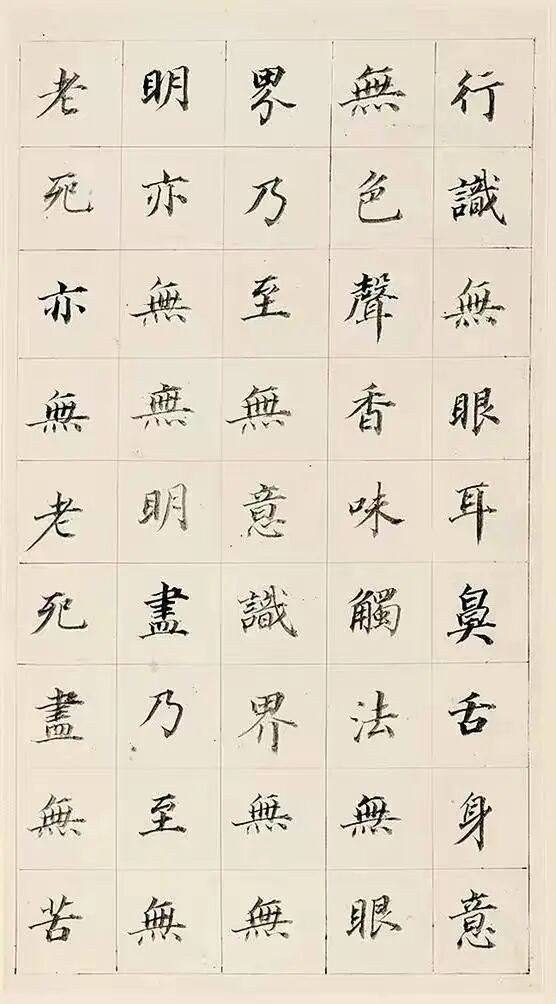 行識無眼耳鼻舌身意
無色聲香味觸法無眼
界乃至無意識界無無
明亦無無明盡乃至無
老死亦無老死盡無苦